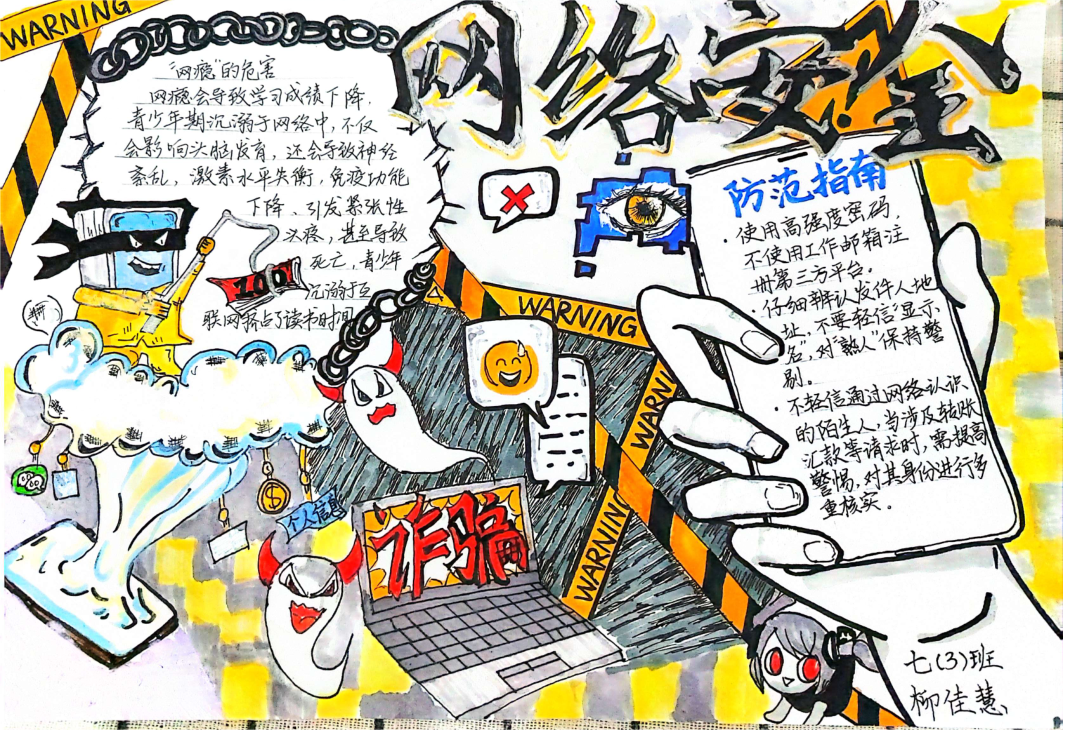 WARNING
网络安全
"网瘾"的危害
网瘾会导致学习成绩下降,
青少年期沉溺于网络中,不仅
会影响头脑发育,还会导致神经
紊乱,激素水平失衡,免疫功能
下降、引发紧张性
头疼,甚至导致
死亡,青少年
沉溺于互
联网挤占了读书时间
100
WARNING
WARNING
WARNING
个人信息
诈骗
防范指南
·使用高强度密码,
不使用工作邮箱注
册第三方平台。
仔细辨认发件人地
址,不要轻信"显示
名",对"熟人"保持警
剔。
·不轻信通过网络认识
的陌生人,当涉及转账
汇款等请求时,需提高
警惕,对其身份进行多
重核实。
七(3)班
柳佳慧